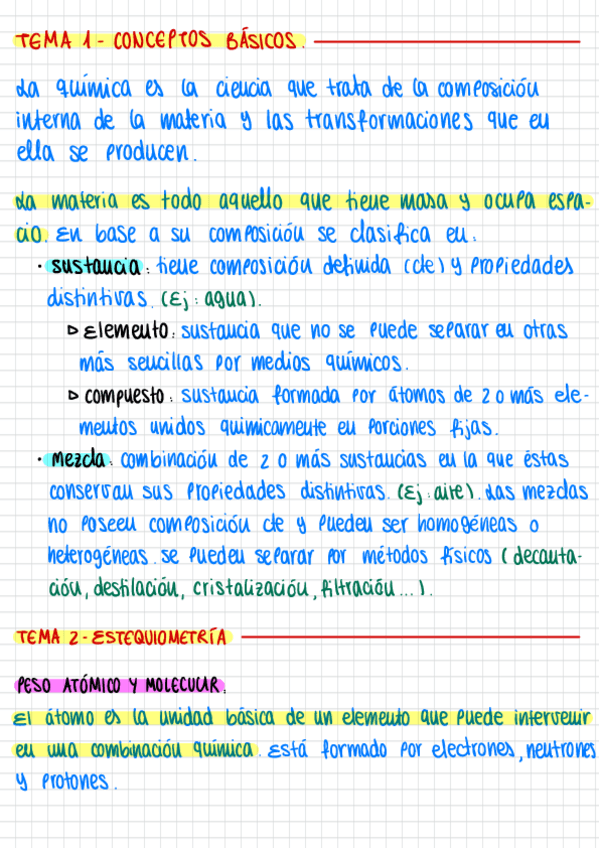 TEMA 1 - CONCEPTOS BÁSICOS.
La química es la ciencia que trata de la composición
interna de la materia y las transformaciones que en
ella se producen.
La materia es todo aquello que tiene masa y ocupa espa-
cio. En base a su composición se clasifica en:
· sustancia: tiene composición definida (cte) y propiedades
distintivas. (Ej: agua).
▷ Elemento: sustancia que no se puede separar en otras
más sencillas por medios químicos.
▷ compuesto: sustancia formada por átomos de 2 o más ele-
mentos unidos quimicamente en porciones fijas.
· Mezcla: combinación de 2 o más sustancias en la que éstas
conservan sus propiedades distintivas. (Ej: aire). Las mezclas
no poseen composición cte y pueden ser homogéneas o
heterogéneas. se pueden separar por métodos físicos (decanta-
ción, destilación, cristalización, filtración...).
TEMA 2 - ESTEQUIOMETRÍA
PESO ATÓMICO Y MOLECULAR.
El átomo es la unidad básica de un elemento que puede intervenir
en una combinación química. Está formado por electrones, neutrones
y protones.